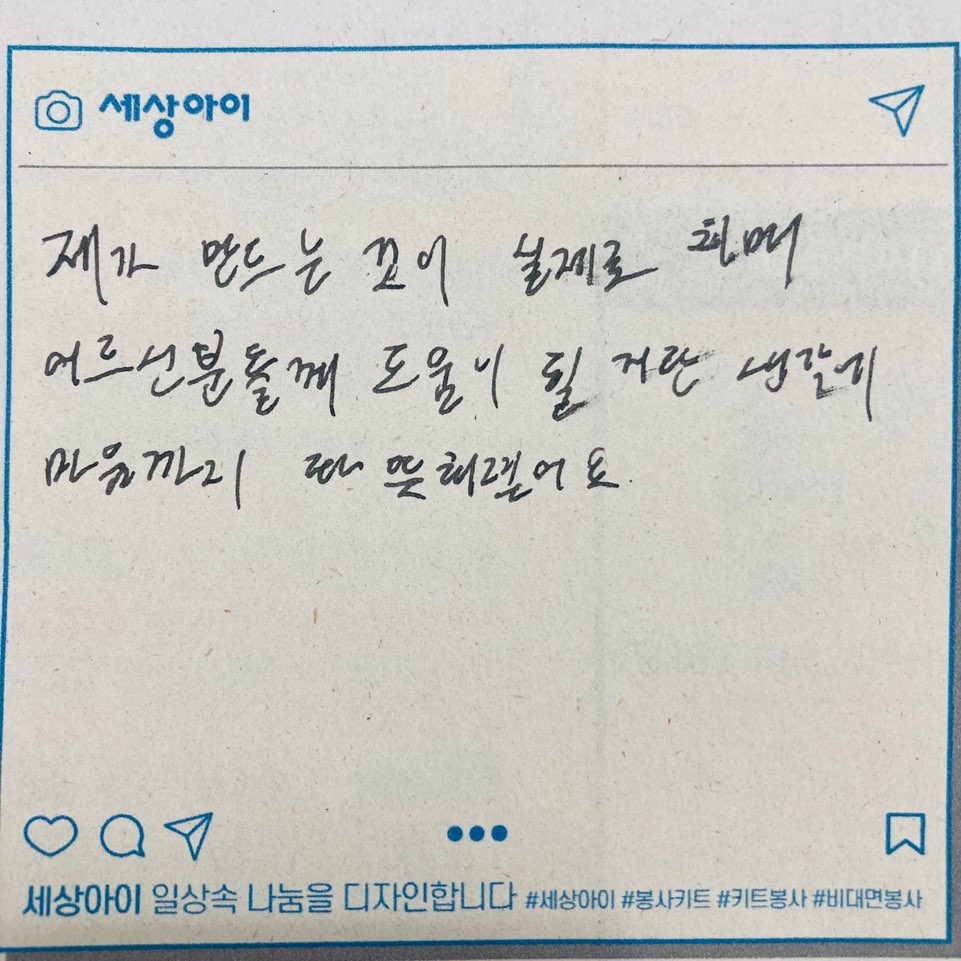 세상아이
제가 만드는 것이 실제로 치매
어르신분들께 도움이 될 거란 생각에
마음까지 따뜻해졌어요.
세상아이 일상속 나눔을 디자인합니다 #세상아이 #봉사키트 #키트봉사 #비대면봉사